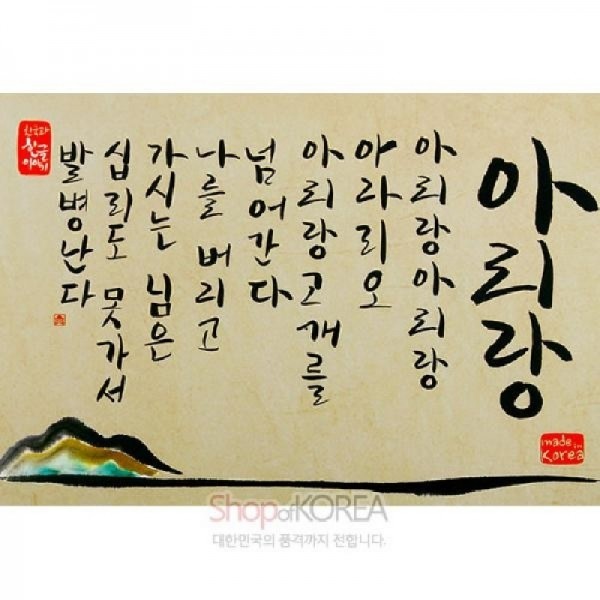 아리랑
아리랑아리랑
아라리오
아리랑고개를
넘어간다
나를 버리고
가시는 님은
십리도 못가서
발병난다
한국과
한글
이야기
made in
Korea
Shop of KOREA
대한민국의 품격까지 전합니다.